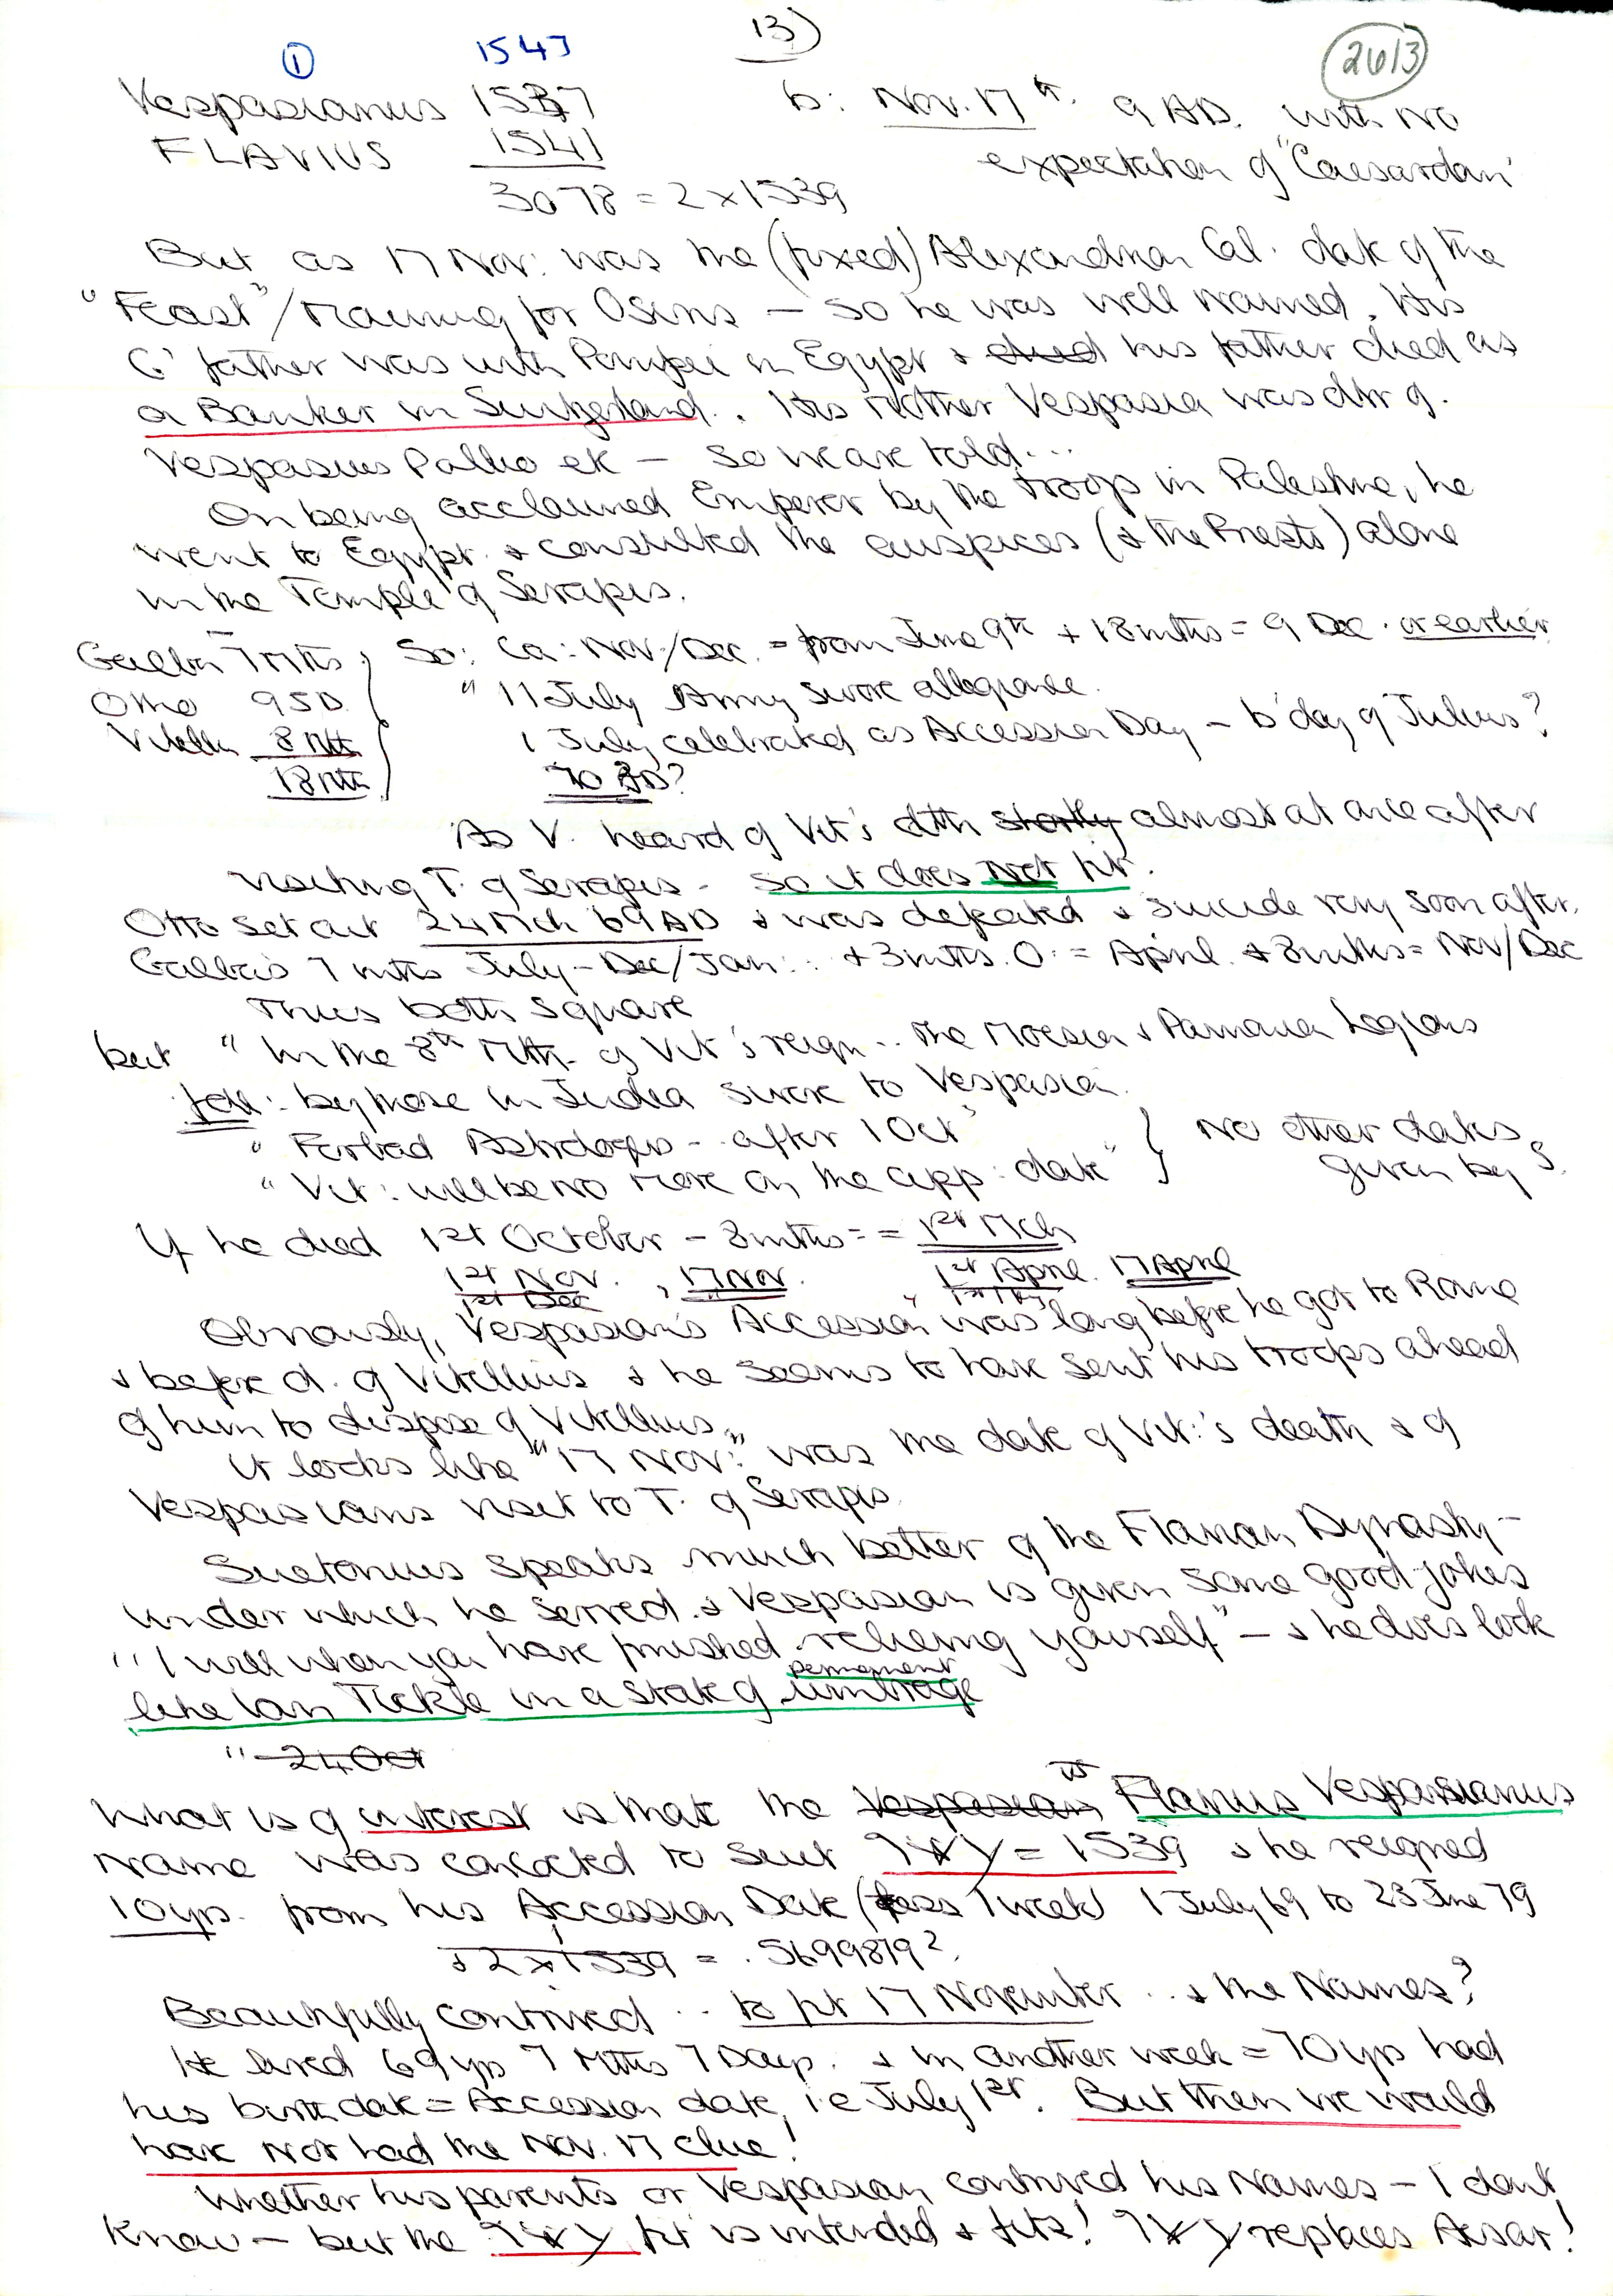 13)
① 1547 2613
Vespasianus 1537 b: Nov. 17th. 9 AD. with no
FLAVIUS 1541 expectation of "Caesardom'
3078 = 2 x 1539
But as 17 Nov: was the (fixed) Alexandrian Cal. date of the
"Feast"/Mourning for Osiris — so he was well named. His
G' father was with Pompei in Egypt & died his father died as
a Banker in Switzerland. His Mother Vespasia was dtr of.
Vespasius Pollio etc — so we are told...
On being acclaimed Emperor by the troops in Palestine, he
went to Egypt & consulted the auspices (& the Priests) alone
in the Temple of Serapis.
Galba 7 Mths So: Ca: Nov/Dec. = from June 9th + 18 mths = 9 Dec. or earlier
Otho 95D. " 11 July Army swore allegiance.
Vitell: 8 Mth 1 July celebrated as Accession Day — b'day of Julius?
18 Mth 70 AD?
As V. heard of Vit's dth shortly almost at once after
visiting T. of Serapis - so it does Not fit.
Otto set out 24 Mch 69 AD & was defeated & suicide very soon after.
Galba's 7 mths July - Dec/Jan: . + 3 mths. O. = April. + 8 mths = Nov/Dec
Thus both square
but " In the 8th Mth of Vit's reign .. the Moesian & Pannonian Legions
foll: by those in Judea swore to Vespasian.
" Forbad Astrologers - . after 1 Oct" No other dates
" Vit: will be no more on the app: date" given by S.
If he died 1st October - 8 mths = = 1st Mch
1st Nov. , 17 Nov. " 1st April. 17 April
1st Dec 1st May
Obviously, Vespasian's Accession was long before he got to Rome
& before d. of Vitellius & he seems to have sent his troops ahead
of him to dispose of Vitellius.
It looks like "17 Nov:" was the date of Vit:'s death & of
Vespasians visit to T. of Serapis.
Suetonius speaks much better of the Flavian Dynasty —
under which he served. & Vespasian is given some good jokes
"I will when you have finished relieving yourself" — & he does look
like Ian Tickle in a state of permanent umbrage
" 24 Oct
What is of interest is that the Vespasian's Flavius Vespasianus
Name was concocted to suit = 1539 & he reigned
10 yrs. from his Accession Date (less 1 week) 1 July 69 to 23 June 79
& 2 x 1539 = .5699879²
Beautifully contrived .. to fit 17 November .. & the Names?
He lived 69 yrs 7 Mths 7 Days. & in another week = 70 yrs had
his birth date = Accession date, i.e July 1st. But then we would
have not had the Nov. 17 clue!
Whether his parents or Vespasian contrived his Names — I dont
know — but the fit is intended & fits! replaces Aesar!